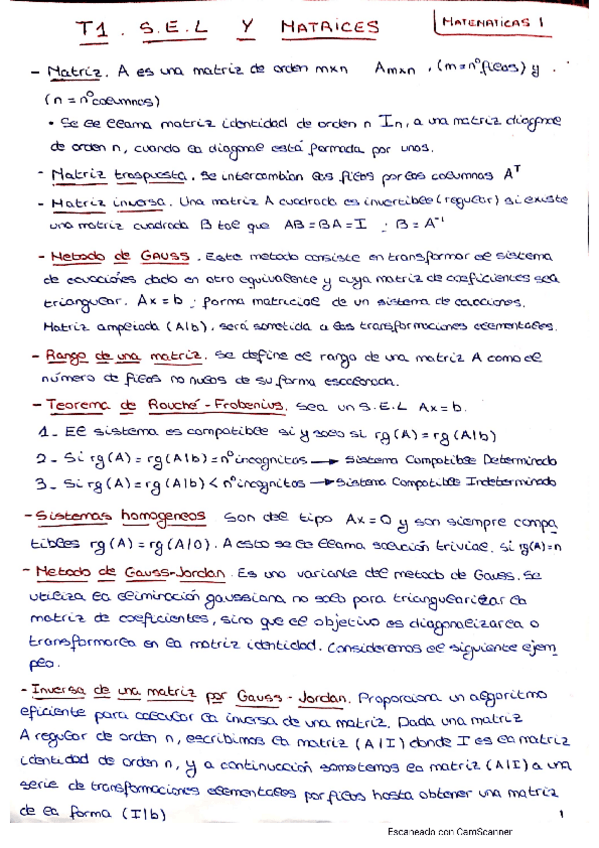 T1. S.E.L Y MATRICES
MATEMATICAS I
- Matriz. A es una matriz de orden mxn Amxn, (m=nºfilas) y
(n=nºcolumnas)
• Se le llama matriz identidad de orden n In, a una matriz diagonal
de orden n, cuando la diagonal está formada por unos.
- Matriz traspuesta. Se intercambian las filas por las columnas Aᵀ
- Matriz inversa. Una matriz A cuadrada es invertible (regular) si existe
una matriz cuadrada B tal que AB=BA=I ; B=A⁻¹
- Metodo de GAUSS. Este metodo consiste en transformar el sistema
de ecuaciónes dado en otro equivalente y cuya matriz de coeficientes sea
triangular. Ax=b ; forma matricial de un sistema de ecuaciones.
Matriz ampliada (A|b), será sometida a las transformaciones elementales.
- Rango de una matriz. se define el rango de una matriz A como el
número de filas no nulas de su forma escalonada.
- Teorema de Rouché-Frobenius. sea un S.E.L Ax=b.
1- El sistema es compatible si y solo si rg(A)=rg(A|b)
2- Si rg(A)=rg(A|b)=nºincognitas → Sistema Compatible Determinado
3- Si rg(A)=rg(A|b)<nºincognitas → Sistema Compatible Indeterminado
- Sistemas homogeneos son del tipo Ax=0 y son siempre compa
tibles rg(A)=rg(A|0). A esto se le llama solución trivial. si rg(A)=n
- Metodo de Gauss-Jordan. Es una variante del metodo de Gauss. Se
utiliza la eliminación gaussiana no solo para triangularizar la
matriz de coeficientes, sino que el objetivo es diagonalizarla o
transformarla en la matriz identidad. Consideremos el siguiente ejem
plo.
- Inversa de una matriz por Gauss-Jordan. Proporciona un algoritmo
eficiente para calcular la inversa de una matriz. Dada una matriz
A regular de orden n, escribimos la matriz (A|I) donde I es la matriz
identidad de orden n, y a continuación sometemos la matriz (A|I) a una
serie de transformaciones elementales por filas hasta obtener una matriz
de la forma (I|b)
1
Escaneado con CamScanner